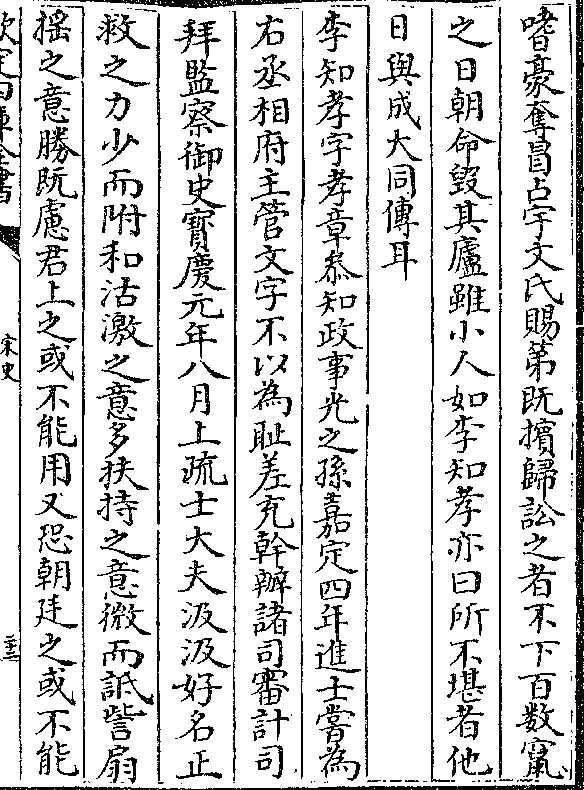 嗜豪奪冒占宇文氏賜第既擯歸訟之者不下百数竄
之日朝命毀其廬雖小人如李知孝亦曰所不堪者他
日與成大同傳耳
李知孝字孝章叅知政事光之孫嘉定四年進士嘗為
右丞相府主管文字不以為耻差充幹辦諸司審計司
拜監察御史寳慶元年八月上疏士大夫汲汲好名正
救之力少而附和沽激之意多扶持之意微而詆訾扇
揺之意勝既慮君上之或不能用又恐朝廷之或不能
欽定四庫全書
宋史